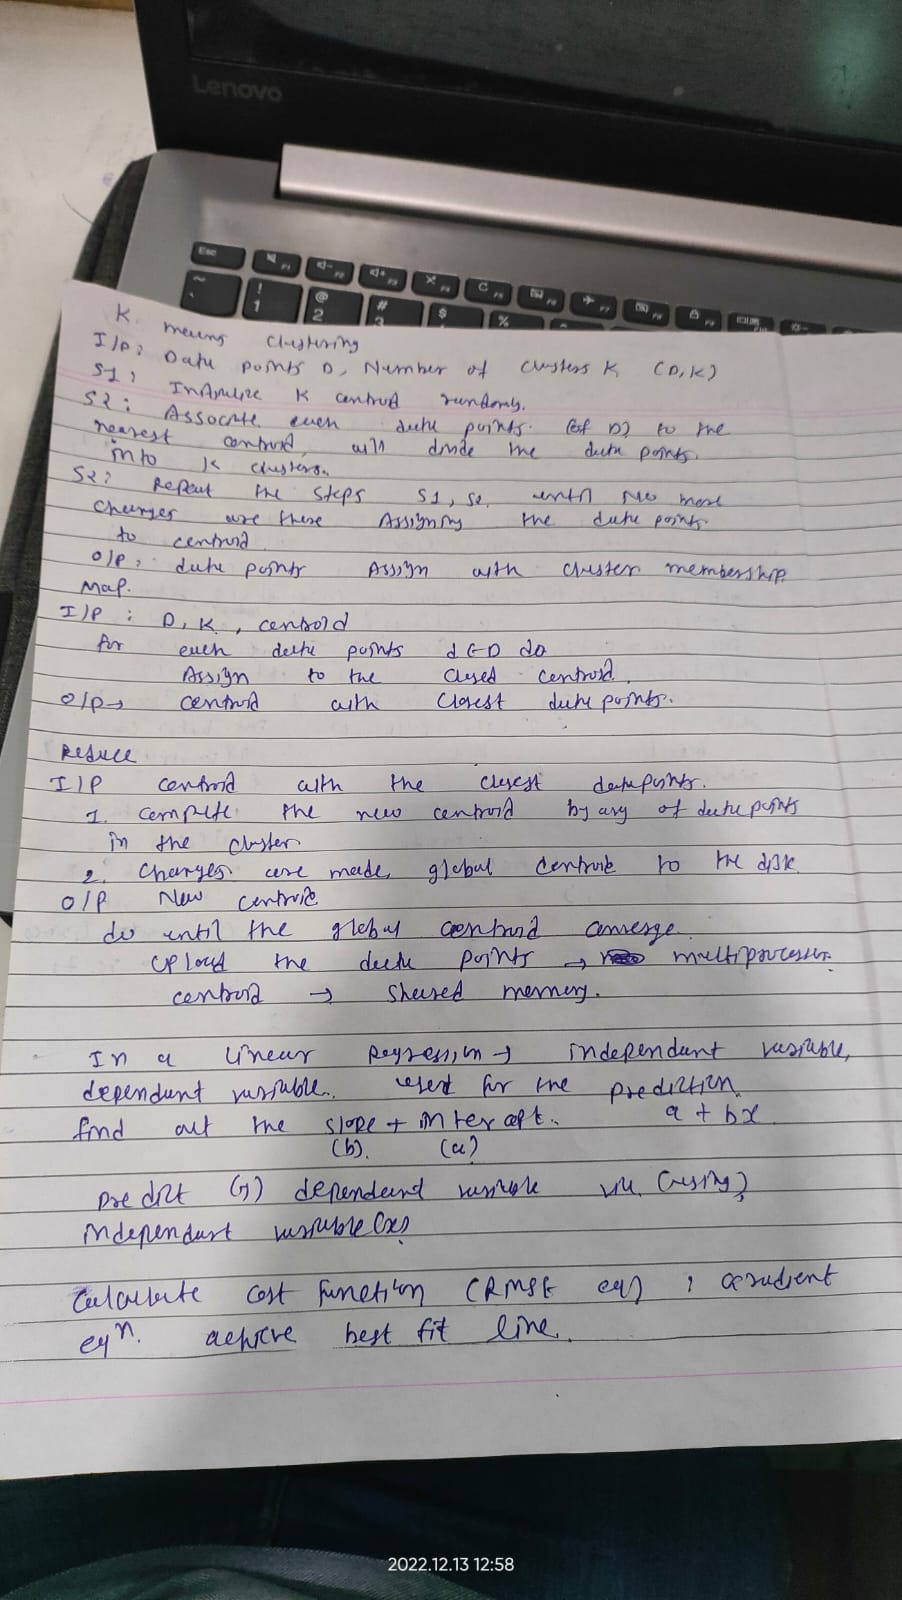 Lenovo
Esc F1 F2 F3 F4 F5 F6 F7 F8 F9
~ ! 1 @ 2 # 3 $ %
K. means clustering
I/p: Data points D, Number of clusters K (D,K)
S1: K centroid randomly.
S2: Associate each data points (of D) to the
nearest centroid, will divide the data points
into K clusters.
Repeat the steps S1, S2 until No more
changes are there Assigning the data points
to centroid
O/p: data points Assign with cluster membership
Map.
I/P : D, K, centroid
for each data points d ∈ D do
Assign to the closed centroid.
O/p→ centroid with closest data points.
Reduce
I/P centroid with the closest datapoints.
1. compute the new centroid by avg of data points
in the cluster
2. Changes are made, global centroid to the disk
O/P New centroid
do until the global centroid converge
upload the data points → multiprocessor
centroid → Shared memory.
In a linear Regression → independant variable,
dependant variable. used for the prediction
find out the slope + intercept. a + bx
(b). (a)
predict (y) dependant variable (using)
independant variable (x)
Calculate cost function (RMSE eq) ; gradient
eqⁿ. achieve best fit line.
2022.12.13 12:58